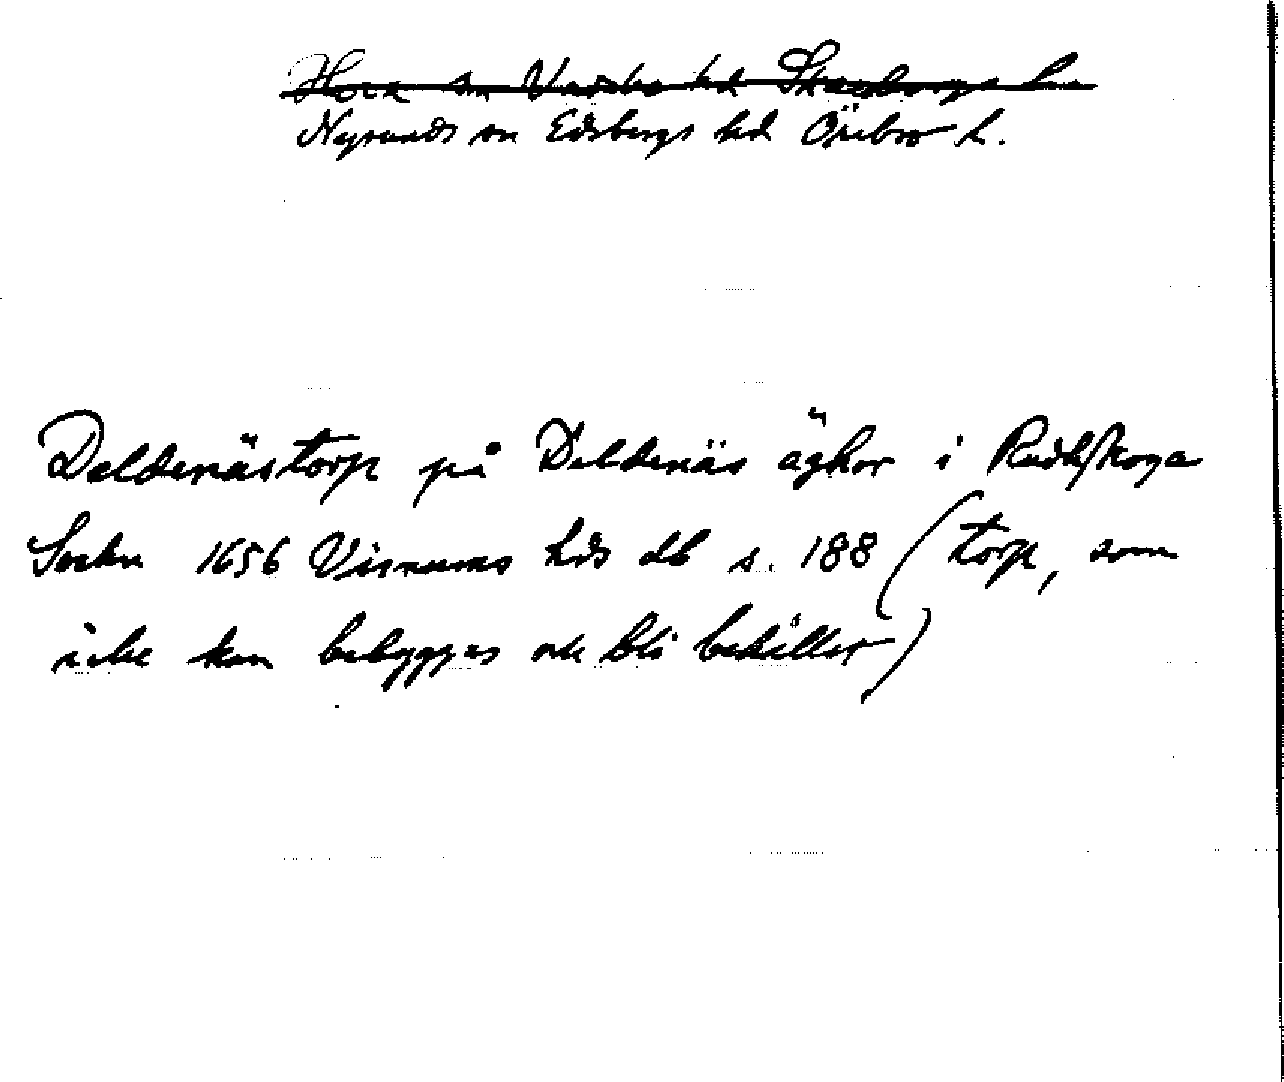 Hova sn Vadsbo hd Skaraborgs län
Nysunds sn Edsbergs hd Örebro l.
Deldenästorp på Deldenäs äghor i Rudskoga
Sochn 1656 Visnums hds db s. 188 (torp, som
icke kan bebyggas och bli behållet)